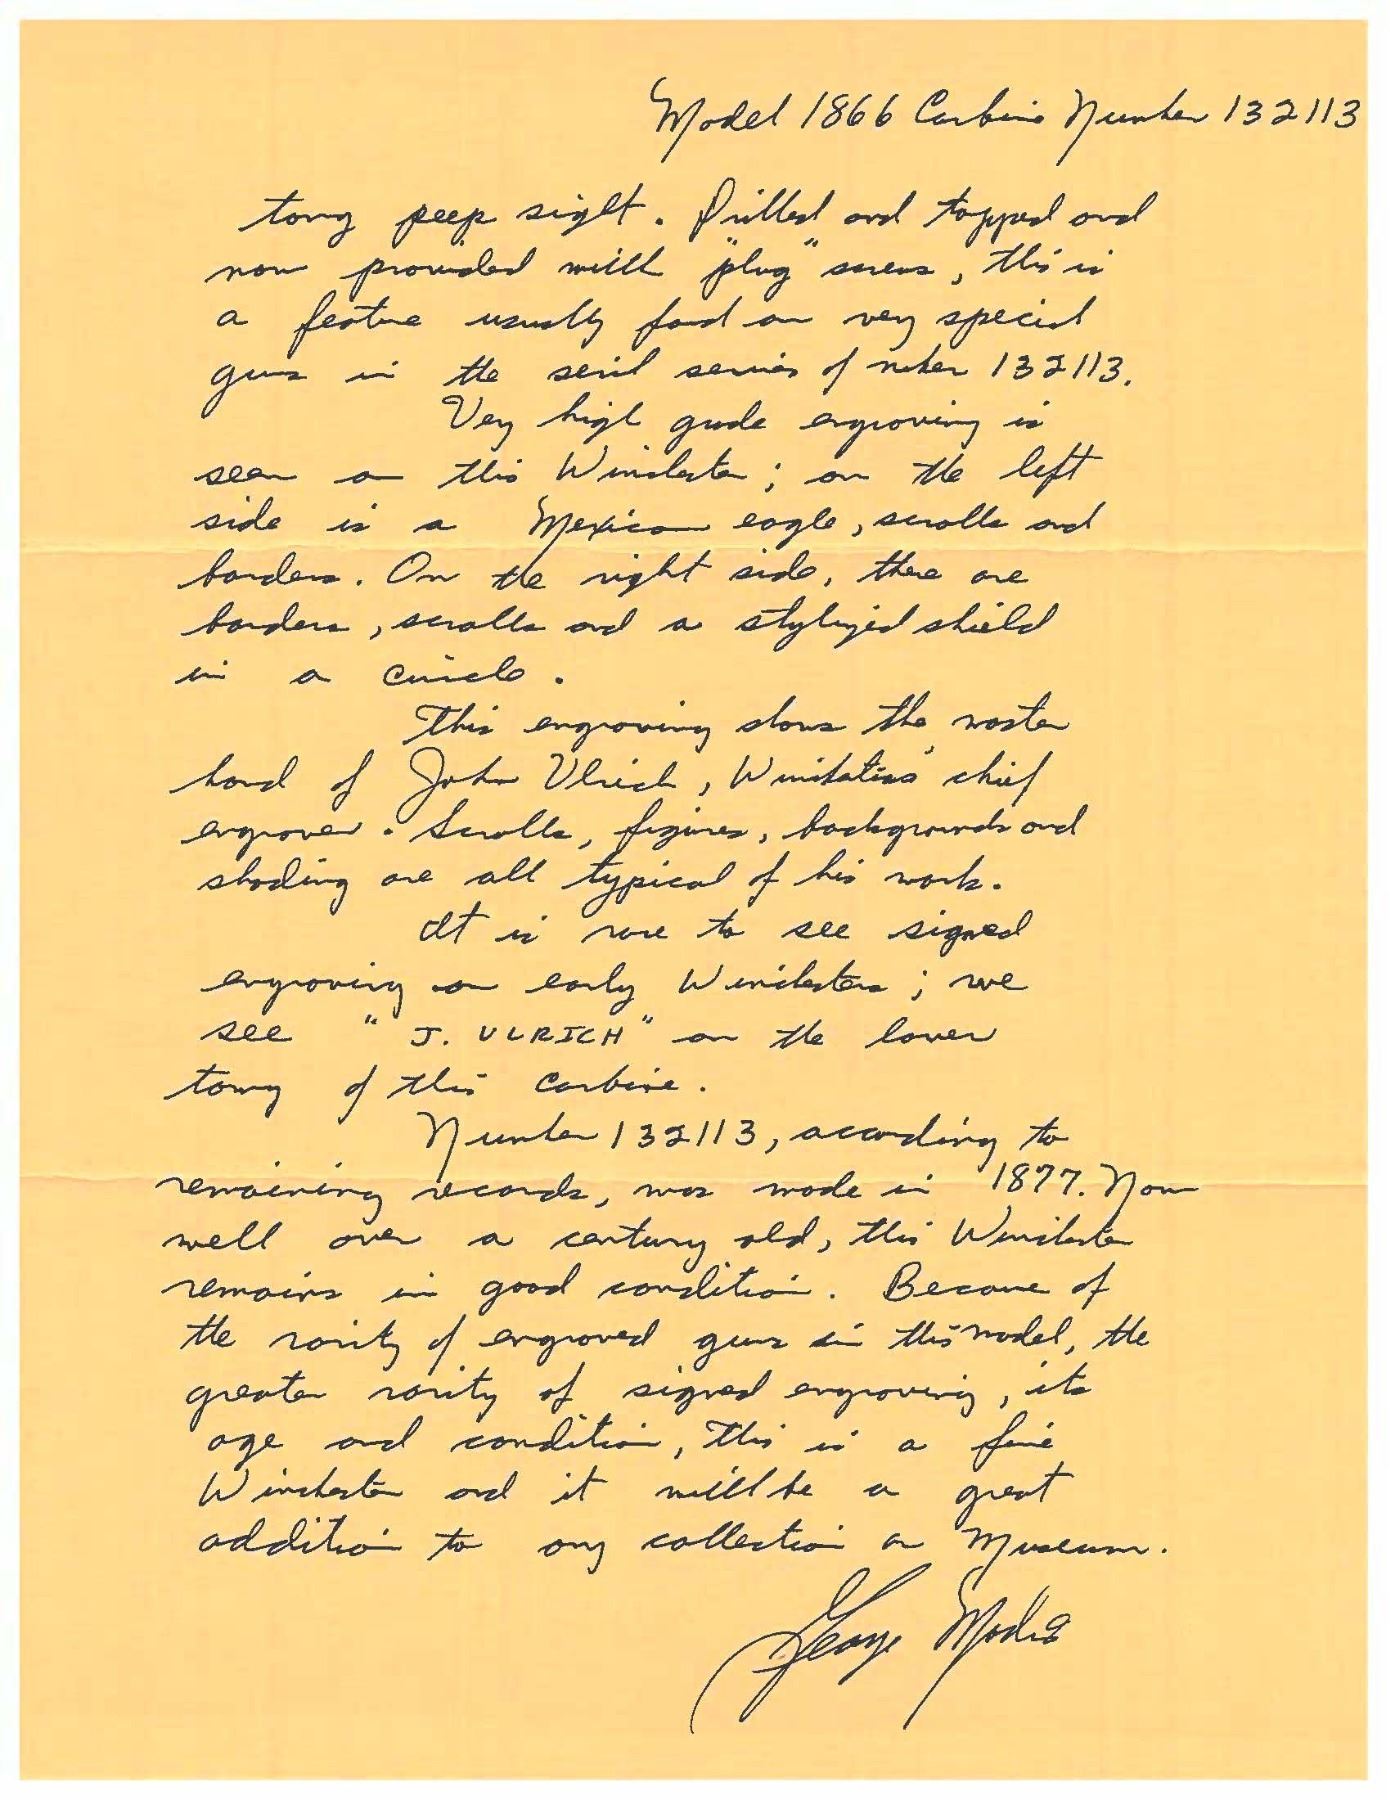 Model 1866 Carbine Number 132113
tang peep sight. Drilled and tapped and
now provided with "plug" screws, this is
a feature usually found on very special
guns in the serial series of number 132113.
Very high grade engraving is
seen on this Winchester; on the left
side is a Mexican eagle, scrolls and
borders. On the right side, there are
borders, scrolls and a stylized shield
in a circle.
This engraving shows the master
hand of John Ulrich, Winchester's chief
engraver. Scrolls, figures, backgrounds and
shading are all typical of his work.
It is rare to see signed
engraving on early Winchesters; we
see "J. ULRICH" on the lower
tang of this carbine.
Number 132113, according to
remaining records, was made in 1877. Now
well over a century old, this Winchester
remains in good condition. Because of
the rarity of engraved guns in this model, the
greater rarity of signed engraving, its
age and condition, this is a fine
Winchester and it will be a great
addition to any collection or Museum.
George Madis